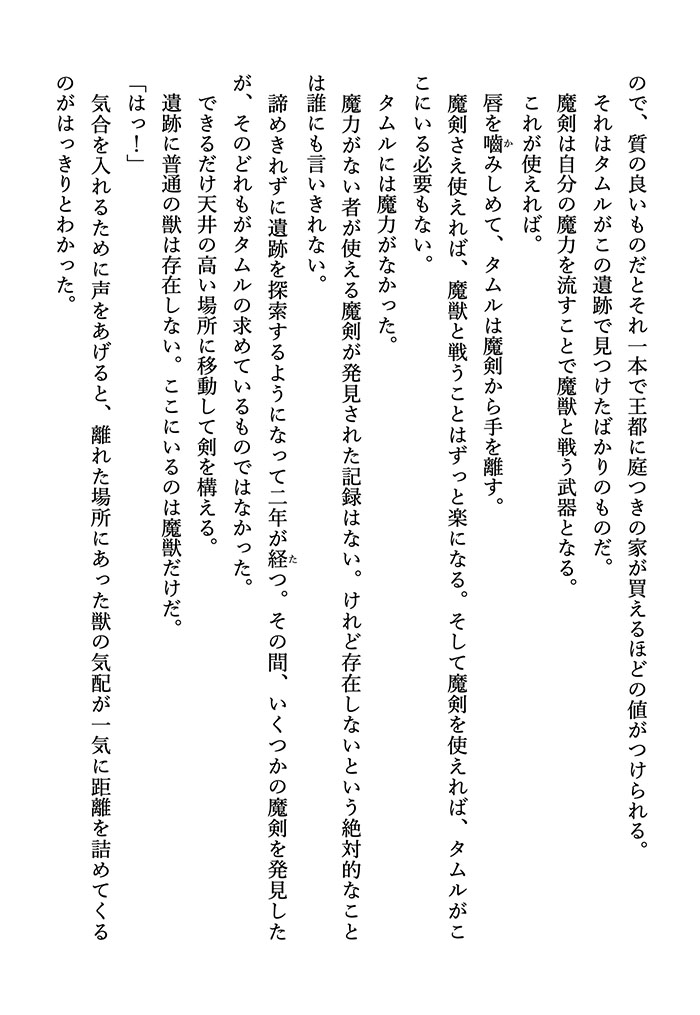 ので、質の良いものだとそれ一本で王都に庭つきの家が買えるほどの値がつけられる。
それはタムルがこの遺跡で見つけたばかりのものだ。
魔剣は自分の魔力を流すことで魔獣と戦う武器となる。
これが使えれば。
唇を嚙かみしめて、タムルは魔剣から手を離す。
魔剣さえ使えれば、魔獣と戦うことはずっと楽になる。そして魔剣を使えれば、タムルがこ
こにいる必要もない。
タムルには魔力がなかった。
魔力がない者が使える魔剣が発見された記録はない。けれど存在しないという絶対的なこと
は誰にも言いきれない。
諦めきれずに遺跡を探索するようになって二年が経たつ。その間、いくつかの魔剣を発見した
が、そのどれもがタムルの求めているものではなかった。
できるだけ天井の高い場所に移動して剣を構える。
遺跡に普通の獣は存在しない。ここにいるのは魔獣だけだ。
「はっ！」
気合を入れるために声をあげると、離れた場所にあった獣の気配が一気に距離を詰めてくる
のがはっきりとわかった。